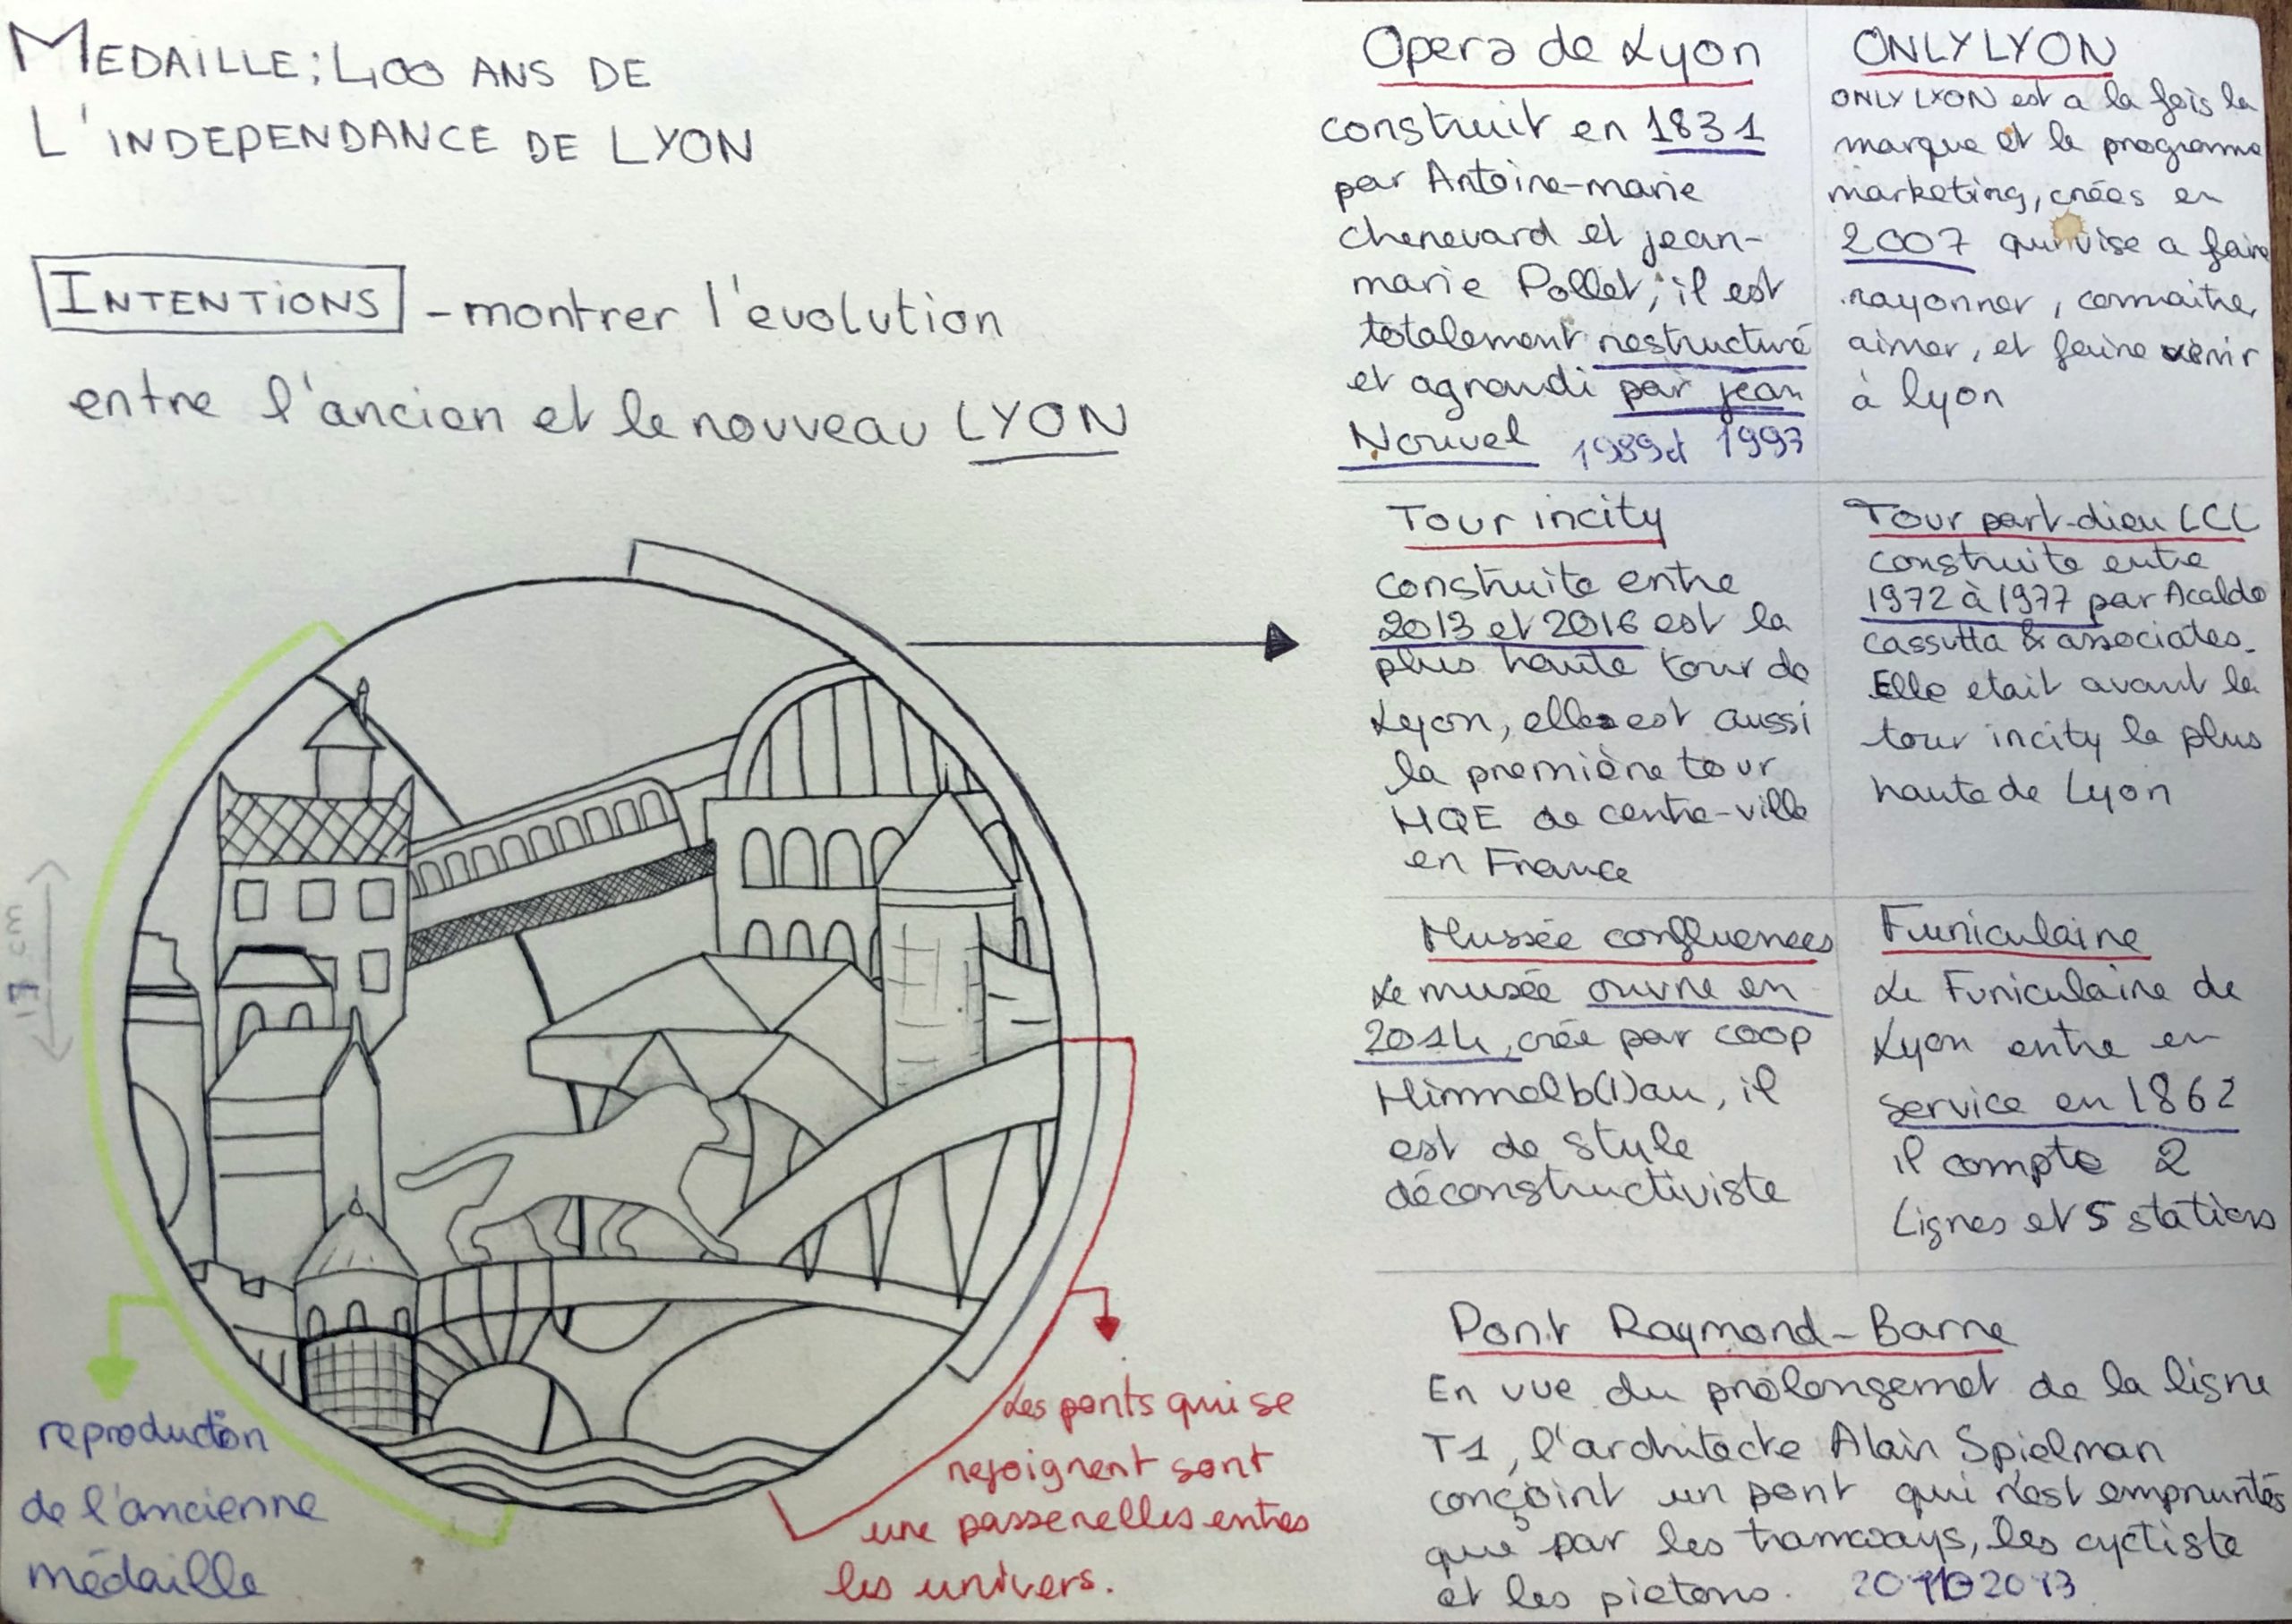 MEDAILLE; 400 ANS DE
L'INDEPENDANCE DE LYON
INTENTIONS - montrer l'evolution
entre l'ancien et le nouveau LYON
17 cm
reproduction
de l'ancienne
médaille
Les ponts qui se
rejoignent sont
une passerelles entres
les univers.
Opera de Lyon
construit en 1831
par Antoine-marie
chenevard et jean-
marie Pollet, il est
totalement restructuré
et agrandi par jean
Nouvel 1989 et 1993
ONLYLYON
ONLY LYON est a la fois la
marque et le programme
marketing, créés en
2007 qui vise a faire
rayonner, connaitre,
aimer, et faire venir
à lyon
Tour incity
construite entre
2013 et 2016 est la
plus haute tour de
Lyon, elle est aussi
la première tour
HQE de centre-ville
en France
Tour part-dieu LCL
construite entre
1972 à 1977 par Acaldo
cassutta & associates.
Elle etait avant la
tour incity la plus
haute de Lyon
Mussée confluences
Le musée ouvre en
2014, crée par coop
Himmelb(l)au, il
est de style
déconstructiviste
Funiculaire
Le Funiculaire de
Lyon entre en
service en 1862
il compte 2
Lignes et 5 stations
Pont Raymond-Barre
En vue du prolongemet de la ligne
T1, l'architecte Alain Spielman
conçoint un pont qui n'est empruntés
que par les tramways, les cyctiste
et les pietons. 2013